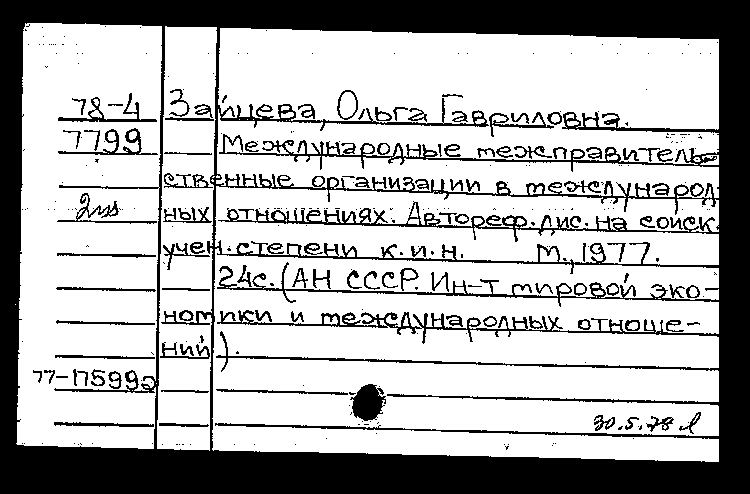 78-4 Зайцева, Ольга Гавриловна.
7799 Международные межправитель-
ственные организации в международ
2 экз ных отношениях. Автореф. дис. на соиск.
учен. степени к.и.н. М., 1977.
24с. (АН СССР. Ин-т мировой эко-
номики и международных отноше-
ний).
77-17599а
30.5.78